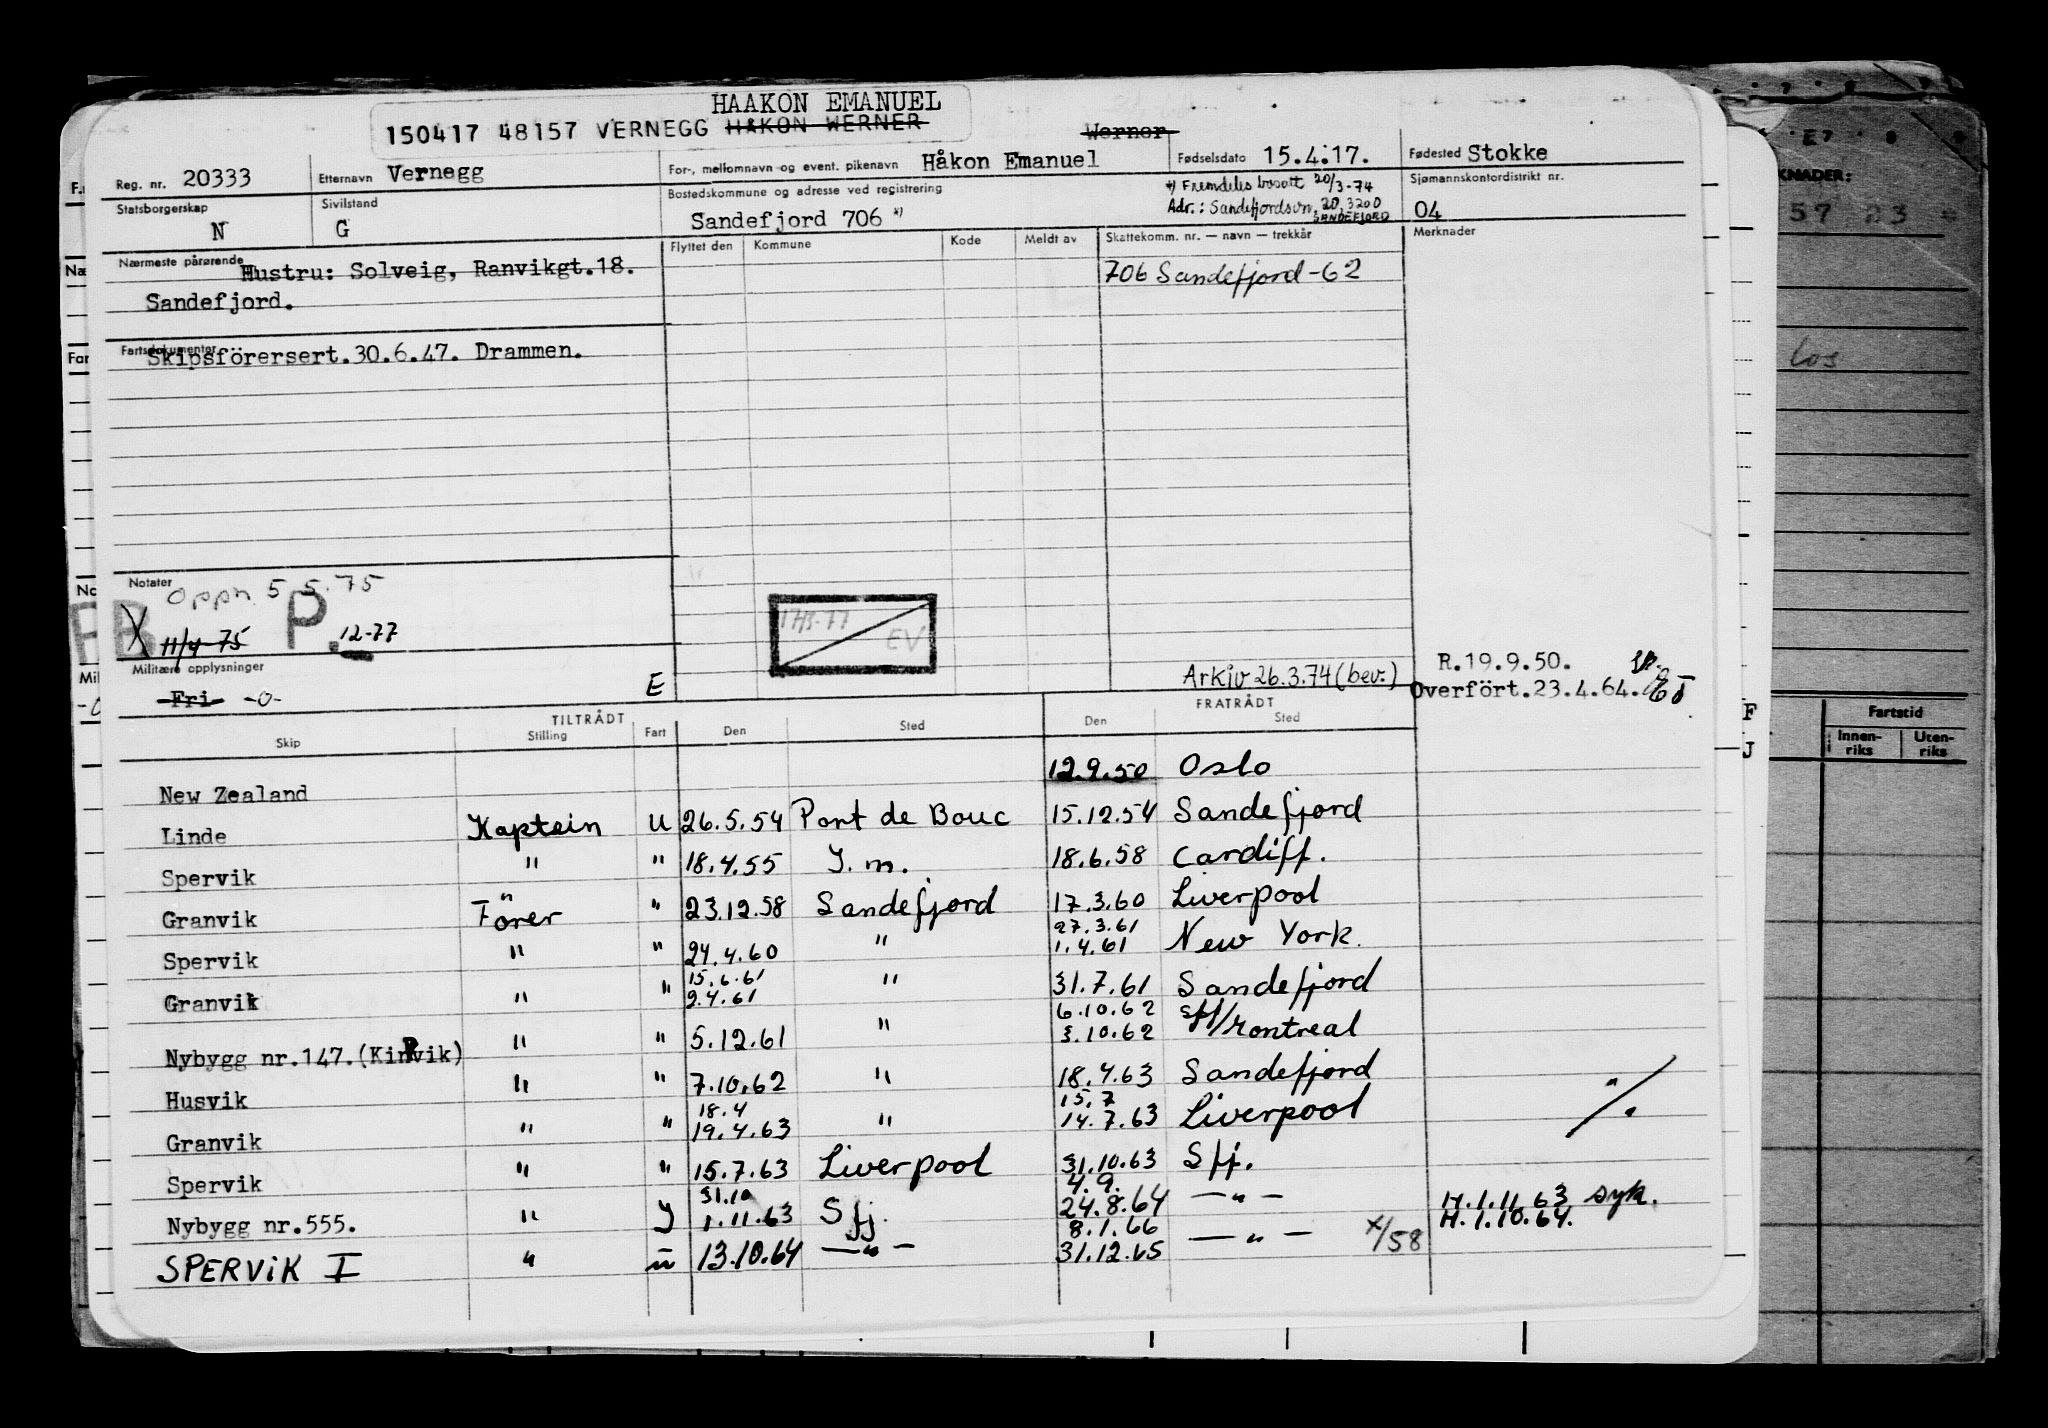 HAAKON EMANUEL
150417 48157 VERNEGG HÅKON WERNER
Werner
Reg. nr. 20333
Etternavn Vernegg
For-, mellomnavn og event. pikenavn Håkon Emanuel
Fødselsdato 15.4.17.
Fødested Stokke
Statsborgerskap
N
Sivilstand
G
Bostedskommune og adresse ved registrering
Sandefjord 706 *)
*) Fremdeles bosatt 20/3-74
Adr.: Sandefjordsvn. 20, 3200
SANDEFJORD
Sjømannskontordistrikt nr.
04
Nærmeste pårørende
Hustru: Solveig, Ranvikgt.18.
Sandefjord.
Flyttet den Kommune Kode Meldt av Skattekomm. nr. — navn — trekkår Merknader
706 Sandefjord-62
Fartsdokumenter
Skipsförersert.30.6.47. Drammen.
Notater
Oppn. 5.5.75
X 11/4-75 P. 12-77
EV
Militære opplysninger
Fri -0-
E
Arkiv 26.3.74 (bev.)
R.19.9.50.
Overfört.23.4.64.
TILTRÅDT FRATRÅDT
Skip Stilling Fart Den Sted Den Sted
New Zealand 12.9.50 Oslo
Linde Kaptein U 26.5.54 Port de Bouc 15.12.54 Sandefjord
Spervik " " 18.4.55 I.m. 18.6.58 Cardiff.
Granvik Förer " 23.12.58 Sandefjord 17.3.60 Liverpool
27.3.61
Spervik " " 24.4.60 " 1.4.61 New York.
15.6.61
Granvik " " 2.4.61 " 31.7.61 Sandefjord
6.10.62
Nybygg nr.147.(Kinvik) " " 5.12.61 " 3.10.62 Sfj/Montreal
Husvik " " 7.10.62 " 18.4.63 Sandefjord
18.4 15.7
Granvik " " 19.4.63 " 14.7.63 Liverpool
Spervik " " 15.7.63 Liverpool 31.10.63 Sfj.
31.10 4.9.
Nybygg nr.555. " I 1.11.63 Sfj. 24.8.64 — " — M.1.11.63 syk.
8.1.66 M.1.10.64.
SPERVIK I " U 13.10.64 — " — 31.12.65 — " — x/58
KNADER:
57 23
los
Fartstid
Innen-
riks
Uten-
riks